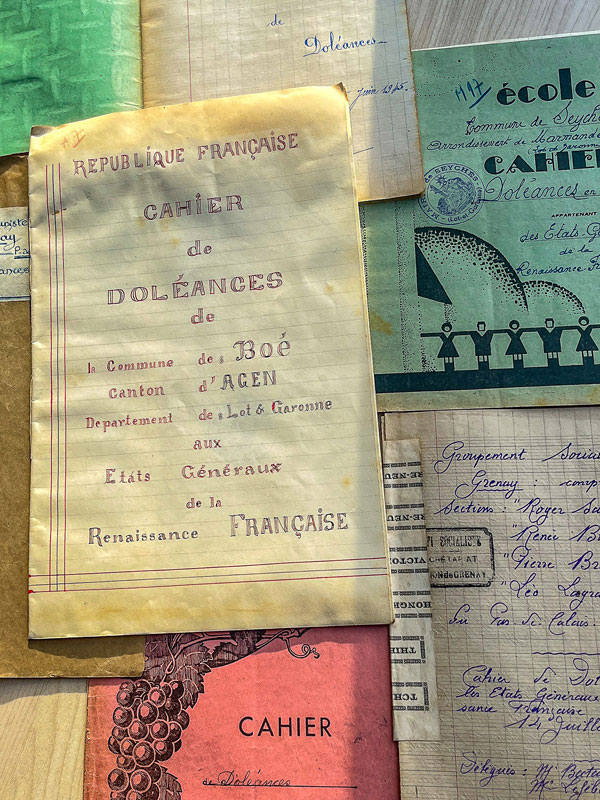 de
Doléances
Juin 1945
M17
REPUBLIQUE FRANÇAISE
CAHIER
de
DOLÉANCES
de
la Commune de: Boé
Canton d'AGEN
Departement de: Lot & Garonne
aux
Etats Généraux
de la
Renaissance FRANÇAISE
M17
école
Commune de Seyches
Arrondissement de Marmande
CAHIER
Doléances en
APPARTENANT
des Etats G
de la
Renaissance
Groupement Social
Grenay : comp
Sections : "Roger Sa
"René B
"Pierre Br
"Léo Lagra
du Pas de Calais.
Cahier de Dol
les Etats Généraux
sance Française
14 Juill
Délégués : Mr
SOCIALISTE
GRENAY
VICTO
THIE
TCH
CAHIER
de Doléances